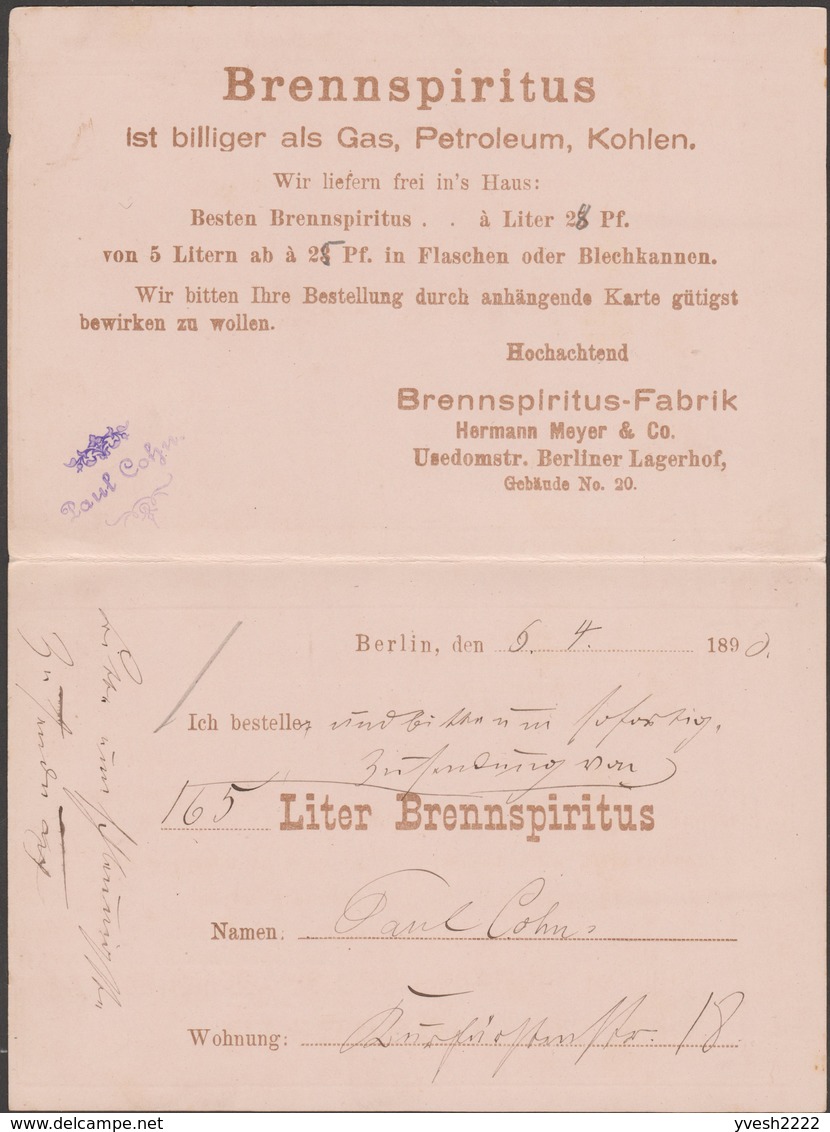 Brennspiritus
ist billiger als Gas, Petroleum, Kohlen.
Wir liefern frei in's Haus:
Besten Brennspiritus . . à Liter 28 Pf.
von 5 Litern ab à 25 Pf. in Flaschen oder Blechkannen.
Wir bitten Ihre Bestellung durch anhängende Karte gütigst
bewirken zu wollen.
Hochachtend
Brennspiritus-Fabrik
Hermann Meyer & Co.
Usedomstr. Berliner Lagerhof,
Gebäude No. 20.
Paul Cohn.
Berlin, den 6. 4. 1890.
Ich bestelle und bitte um sofortig.
Zusendung von
165 Liter Brennspiritus
Namen: Paul Cohn
Wohnung: Kurfürstenstr. 18
bitte um schleunigste
Zusendung
yvesh2222